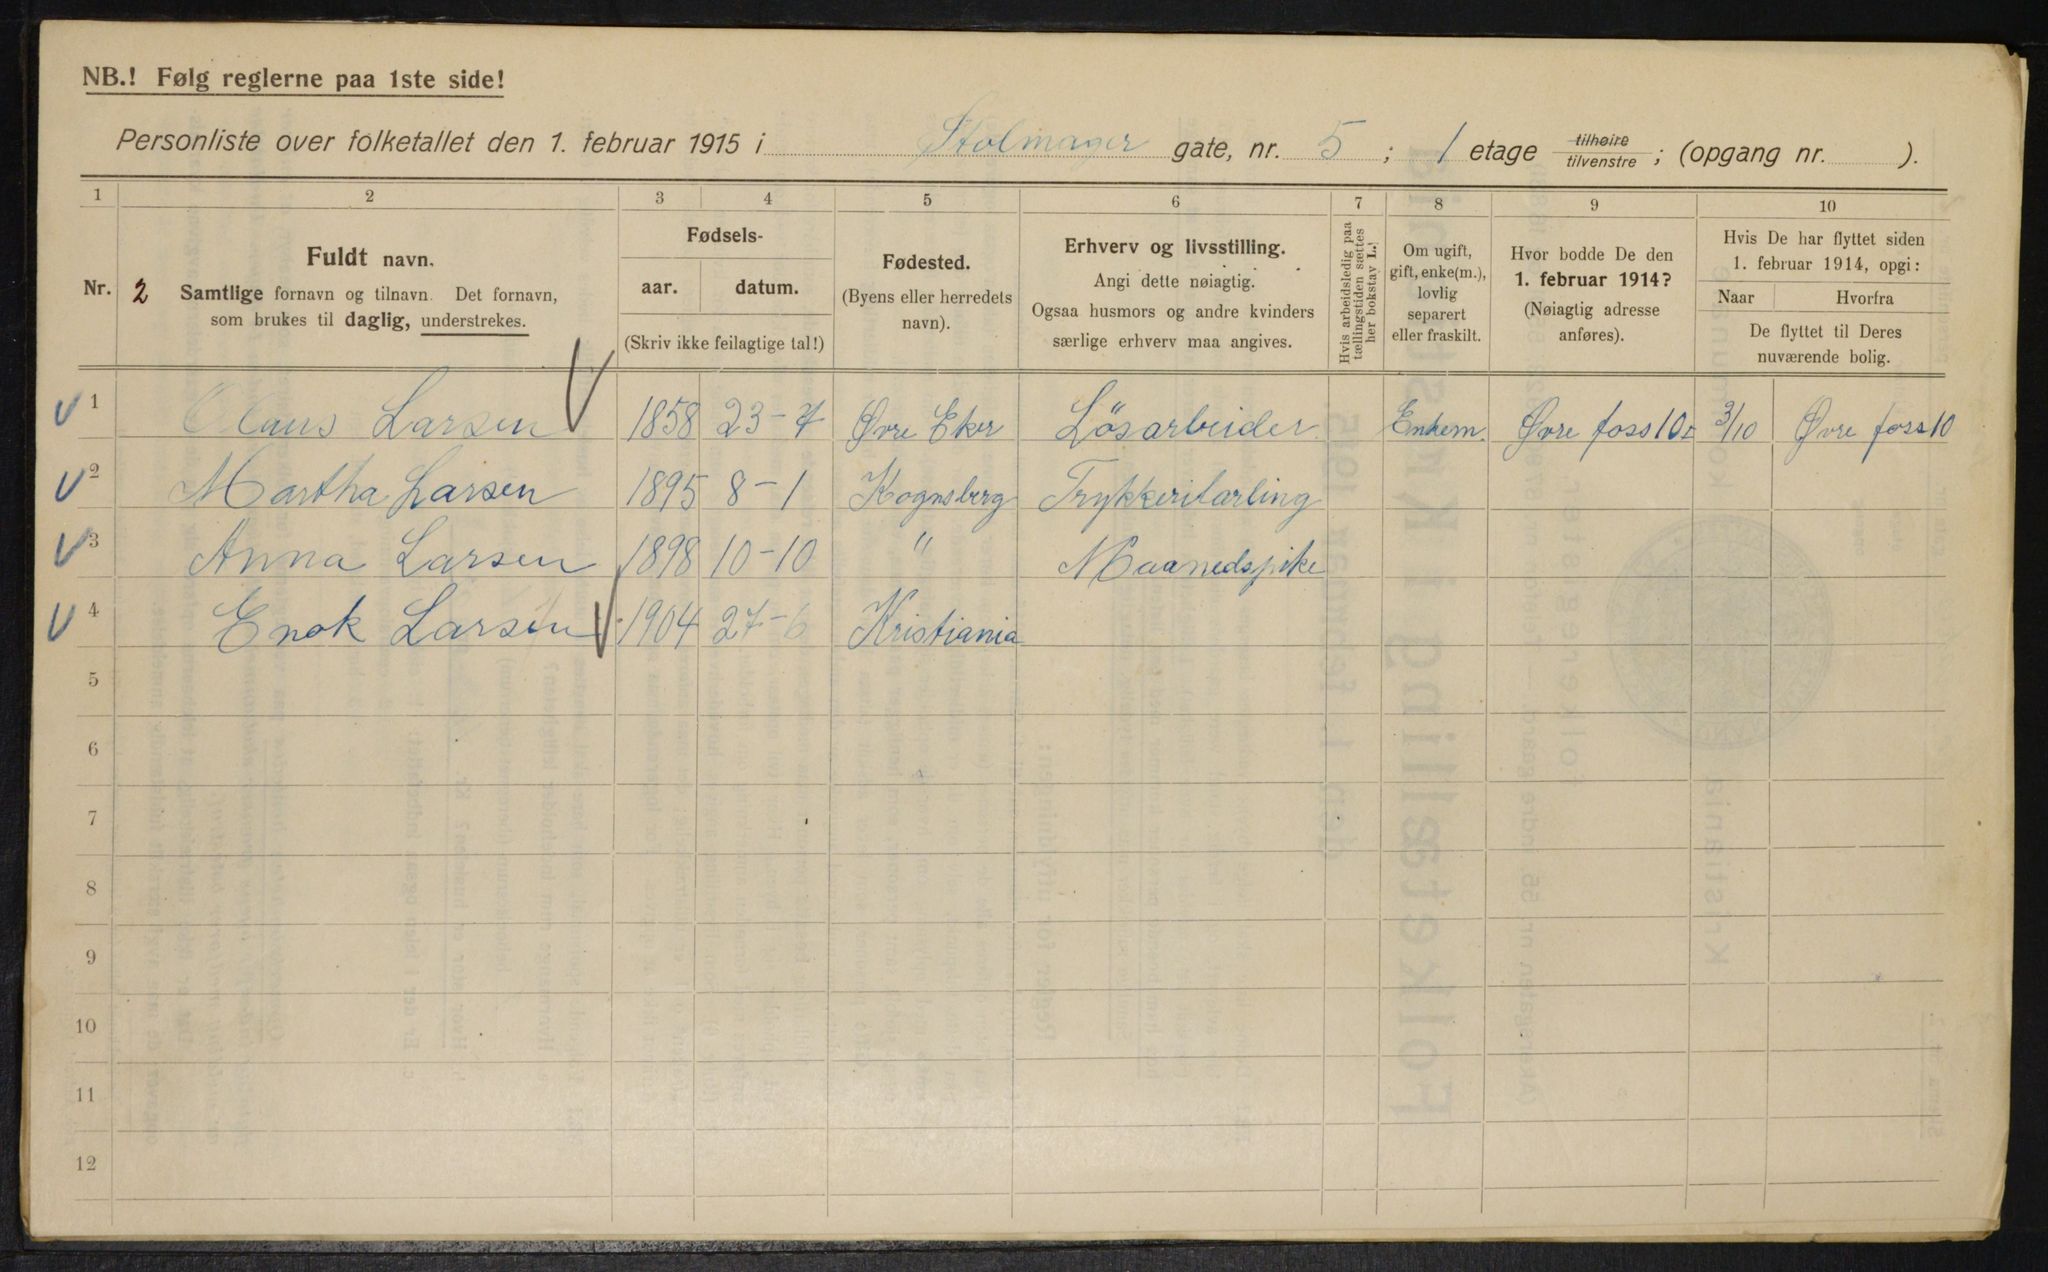 NB.! Følg reglerne paa 1ste side!
Personliste over folketallet den 1. februar 1915 i Stolmager gate, nr. 5 ; 1 etage tilhøire tilvenstre ; (opgang nr. ).
1 2 3 4 5 6 7 8 9 10
Nr. 2
Fuldt navn.
Samtlige fornavn og tilnavn. Det fornavn,
som brukes til daglig, understrekes.
Fødsels-
aar. datum.
(Skriv ikke feilagtige tal!)
Fødested.
(Byens eller herredets
navn).
Erhverv og livsstilling.
Angi dette nøiagtig.
Ogsaa husmors og andre kvinders
særlige erhverv maa angives.
Hvis arbeidsledig paa
tællingstiden sættes
her bokstav L.!
Om ugift,
gift, enke(m.),
lovlig
separert
eller fraskilt.
Hvor bodde De den
1. februar 1914?
(Nøiagtig adresse
anføres).
Hvis De har flyttet siden
1. februar 1914, opgi:
Naar Hvorfra
De flyttet til Deres
nuværende bolig.
1 Claus Larsen 1858 23-7 Øvre Eker Løsarbeider Enkem. Øvre foss 10 3/10 Øvre foss 10
2 Martha Larsen 1895 8-1 Kognsberg Trykkerilærling
3 Anna Larsen 1898 10-10 " Maanedspike
4 Enok Larsen 1904 27-6 Kristiania
5
6
7
8
9
10
11
12